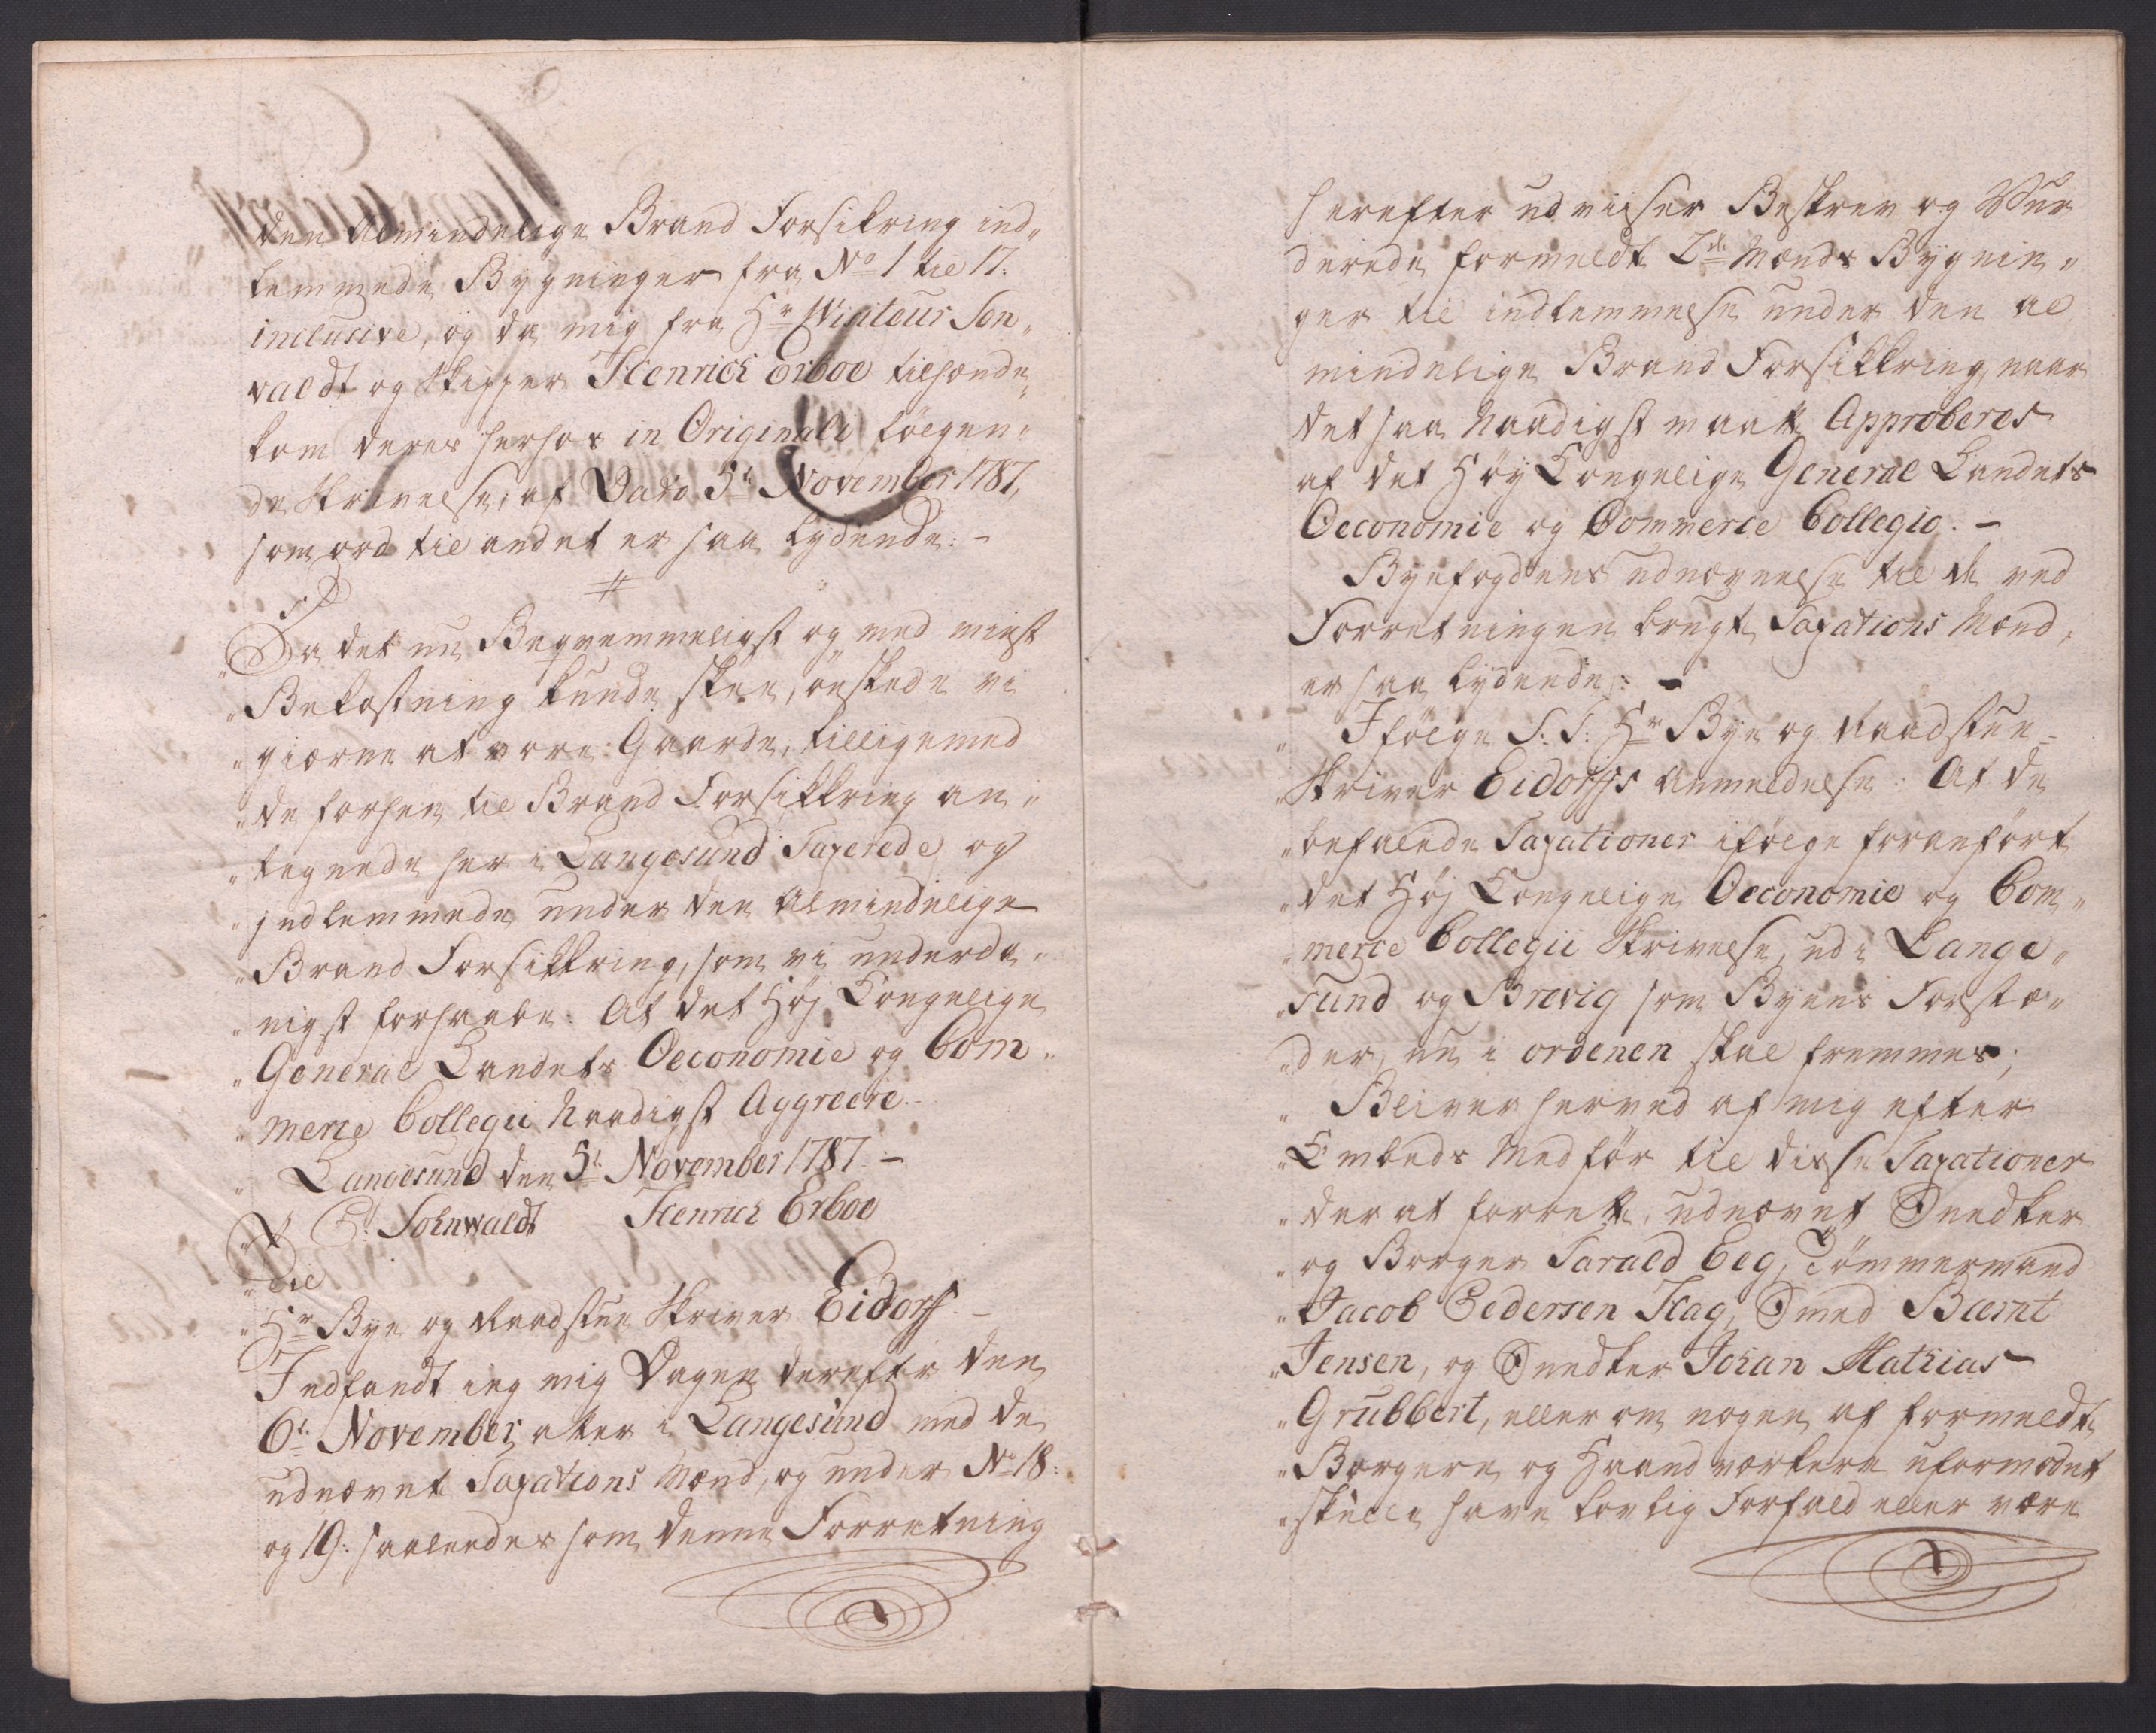 den Almindelige Brand Forsikring ind„
lemmede Bygninger fra No 1 til 17.
inclusive, og da mig fra Hr Visiteur Son„
valdt og Skipper Henrich Erboe tilhænde„
kom deres herhos in Originali følgen„
de Skrivelse, af Dato 5t November 1787,
som ord til andet er saa lydende: -
„Da det nu Beqvemmeligst og med minst
„Bekostning kunde skee, ønskede vi
„giærne at vore Gaarde, tilligemed
„de forhen til Brand Forsikkring an„
„tegnede her i Langesund Taxerede og
„jndlemmede under den Almindelige
„Brand Forsikkring, som vi underda„
„nigst forhaabe: At det Høj Kongelige
„General Landets Oeconomie og Com„
„merce Collegii Naadigst Aggreere.
„Langesund den 5t November 1787. -
„ Sohnwaldt Henrich Erboe
„Til
„Hr Bye og Raadstue Skriver Eidorff. -
Indfandt ieg mig Dagen derefter den
6t November, atter i Langesund med de
udnævnte Taxations Mænd, og under No 18:
og 19: saaledes som denne Forretning
herefter udviiser Beskrev og Vur
derede formeldte 2de Mænds Bygnin„
ger til indlemmelse under den al
mindelige Brand Forsikkring, naar
det saa Naadigst maatte Approberes
af det Høy Kongelige General Landets
Oeconomie og Commerce Collegio. -
Byefogdens udnævnelse til de ved
Forretningen brugte Taxations Mænd,
er saa lydende: -
„Ifølge S: T: Hr Bye og Raadstue=
„Skriver Eidorffs Anmeldelse: At de
„befalende Taxationer ifølge foranført
„det Høj Kongelige Oeconomie og Com„
„merce Collegii Skrivelse, ud i Lange„
„sund og Brevig som Byens Forstæ„
„der, nu i ordenen skal fremmes;
„Bliver herved af mig efter
„Embeds Medför til disse Taxationer
„der at forrette, udnævnt Snedker
„og Borger Tarald Eeg, Tömmermand
„Jacob Pedersen Flag, Smed Bærnt
„Jensen, og Snedker Johan Mathias
„Grubbert, eller om nogen af formeldte
„Borgere og Haandværkere uformodet
„skulle have lovlig Forfald eller være